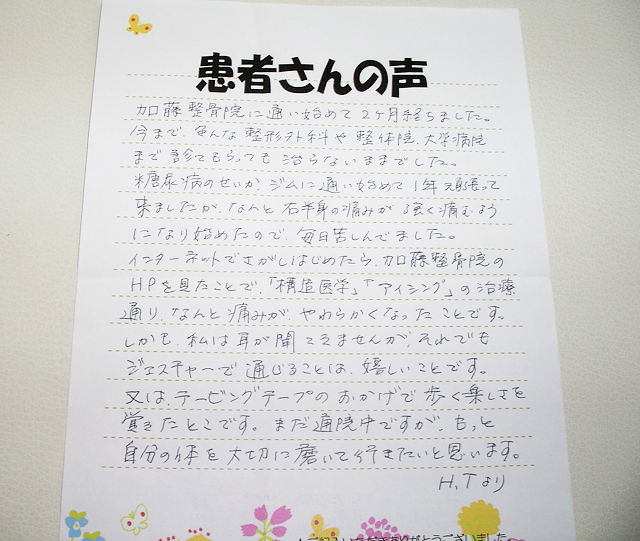 患者さんの声
加藤整骨院に通い始めて2ヶ月経ちました。
今まで、色んな整形外科や整体院、大学病院
まで診てもらっても治らないままでした。
糖尿病のせいか、ジムに通い始めて1年頑張って
来ましたが、なんと右半身の痛みが強く痛むよう
になり始めたので、毎日苦しんでました。
インターネットでさがしはじめたら、加藤整骨院の
HPを見たことで、「構造医学」「アイシング」の治療
通り、なんと痛みが、やわらかくなったことです。
しかも、私は耳が聞こえませんが、それでも
ジェスチャーで通じることは、嬉しいことです。
又は、テーピングテープのおかげで歩く楽しさを
覚えたとこです。まだ通院中ですが、もっと
自分の体を大切に磨いて行きたいと思います。
H,Tより
ありがとうございました